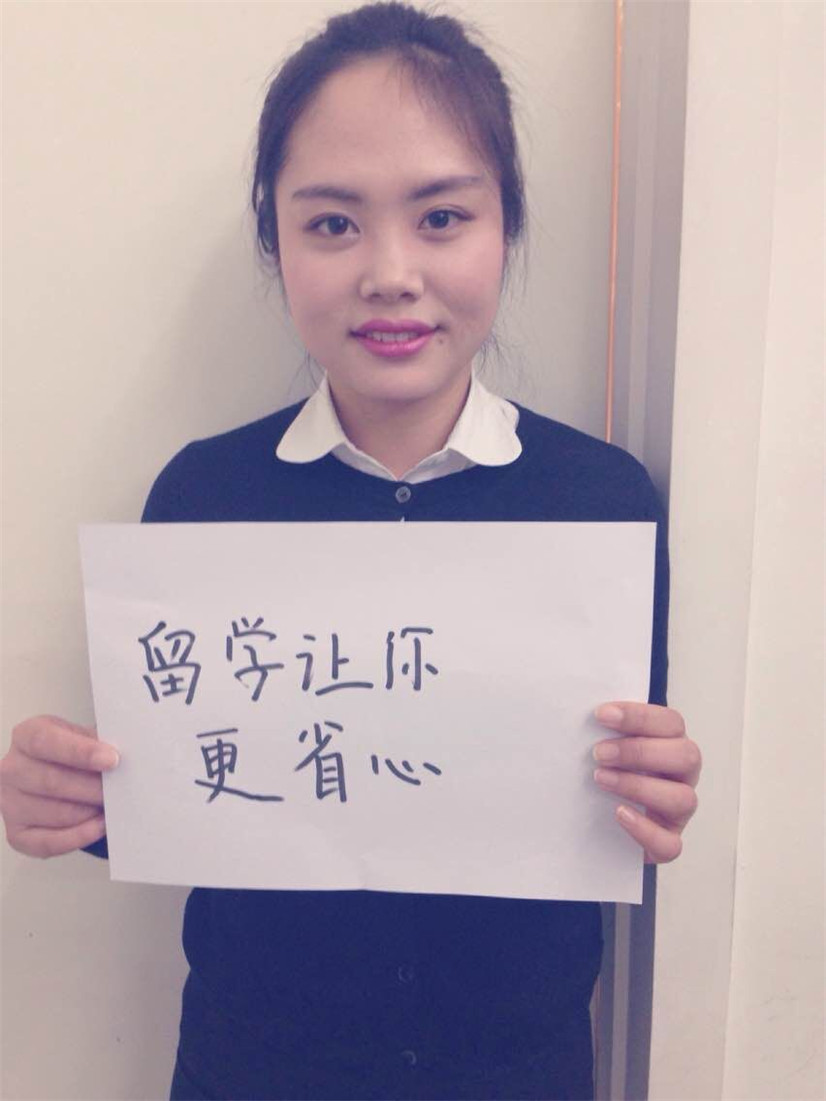 留学让你
更省心